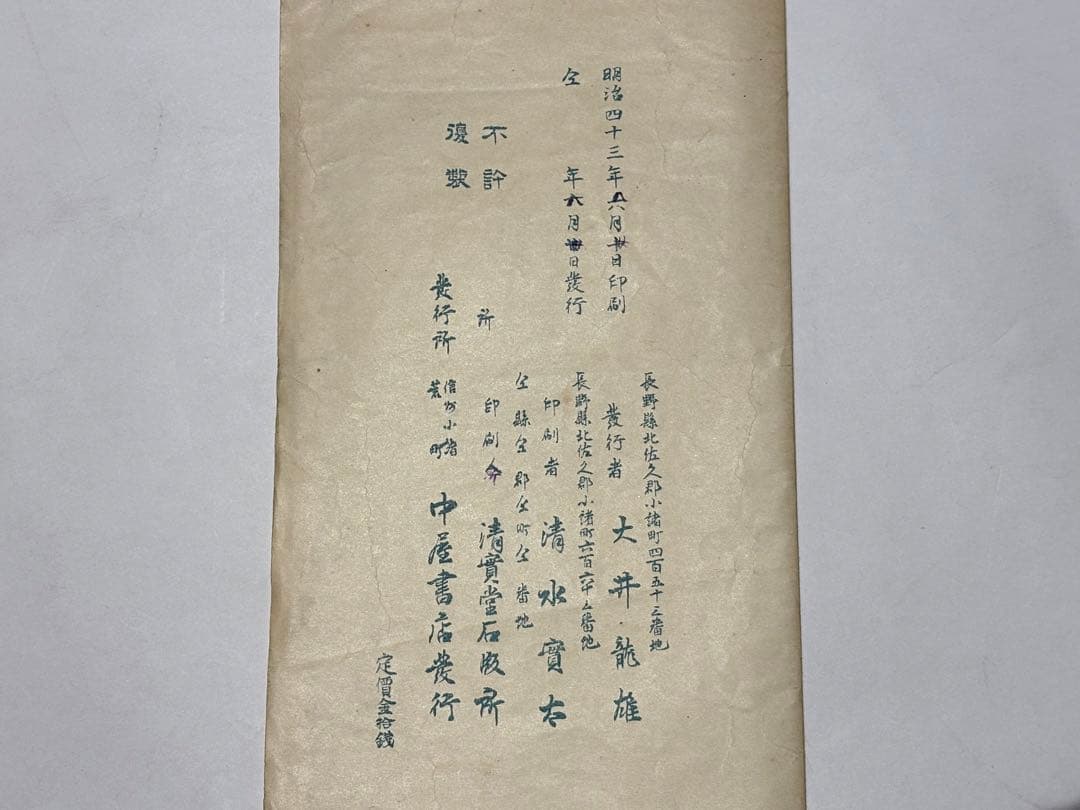 明治四十三年六月廿日印刷
仝年六月日發行
不許
複製
長野縣北佐久郡小諸町四百五十三番地
發行者 大井龍雄
長野縣北佐久郡小諸町六百六十三番地
印刷者 清水實太
仝縣仝郡仝町仝番地
印刷所 清實堂石版所
發行所 信州小諸荒町 中屋書店發行
定價金拾錢